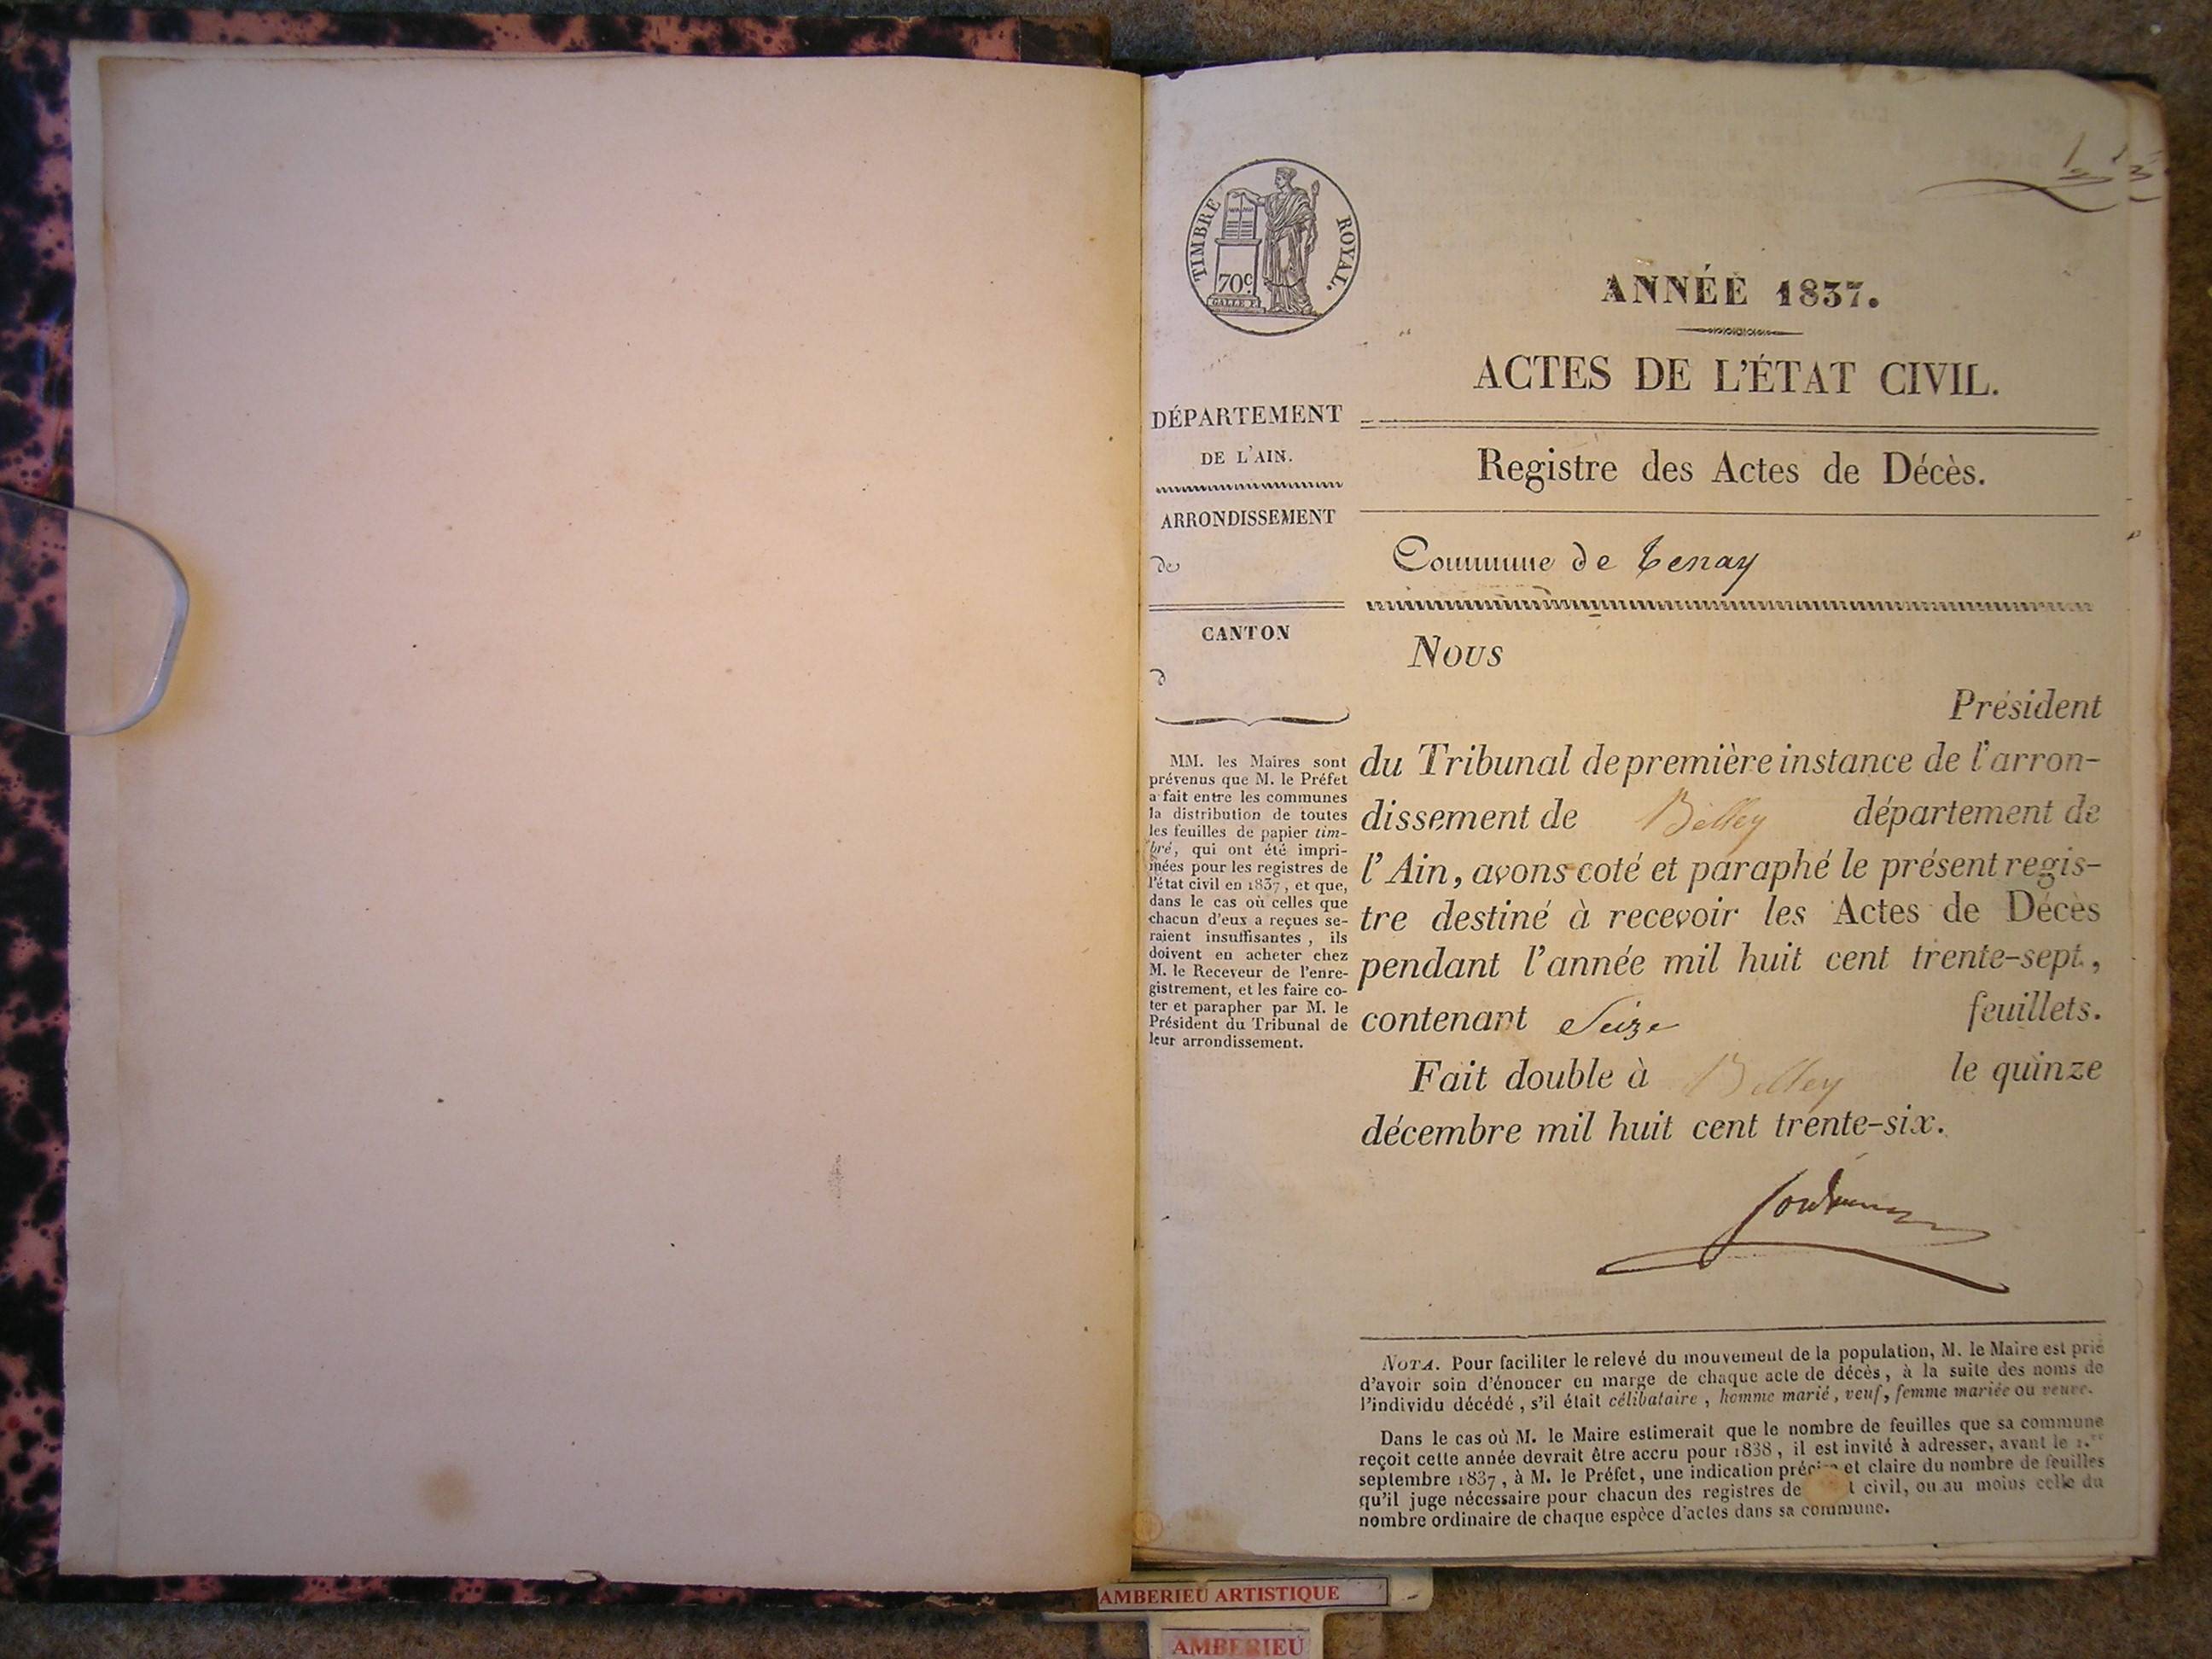 TIMBRE ROYAL.
70c.
GALLE F.
ANNÉE 1837.
ACTES DE L'ÉTAT CIVIL.
Registre des Actes de Décès.
Commune de Tenay
DÉPARTEMENT
DE L'AIN.
ARRONDISSEMENT
de
CANTON
d
MM. les Maires sont
prévenus que M. le Préfet
a fait entre les communes
la distribution de toutes
les feuilles de papier tim-
bré, qui ont été impri-
mées pour les registres de
l'état civil en 1837, et que,
dans le cas où celles que
chacun d'eux a reçues se-
raient insuffisantes, ils
doivent en acheter chez
M. le Receveur de l'enre-
gistrement, et les faire co-
ter et parapher par M. le
Président du Tribunal de
leur arrondissement.
Nous
Président
du Tribunal de première instance de l'arron-
dissement de Belley département de
l'Ain, avons coté et paraphé le présent regis-
tre destiné à recevoir les Actes de Décès
pendant l'année mil huit cent trente-sept,
contenant Seize feuillets.
Fait double à Belley le quinze
décembre mil huit cent trente-six.
NOTA. Pour faciliter le relevé du mouvement de la population, M. le Maire est prié
d'avoir soin d'énoncer en marge de chaque acte de décès, à la suite des noms de
l'individu décédé, s'il était célibataire, homme marié, veuf, femme mariée ou veuve.
Dans le cas où M. le Maire estimerait que le nombre de feuilles que sa commune
reçoit cette année devrait être accru pour 1838, il est invité à adresser, avant le 1.er
septembre 1837, à M. le Préfet, une indication précise et claire du nombre de feuilles
qu'il juge nécessaire pour chacun des registres de t civil, ou au moins celle du
nombre ordinaire de chaque espèce d'actes dans sa commune.
AMBERIEU ARTISTIQUE
AMBERIEU